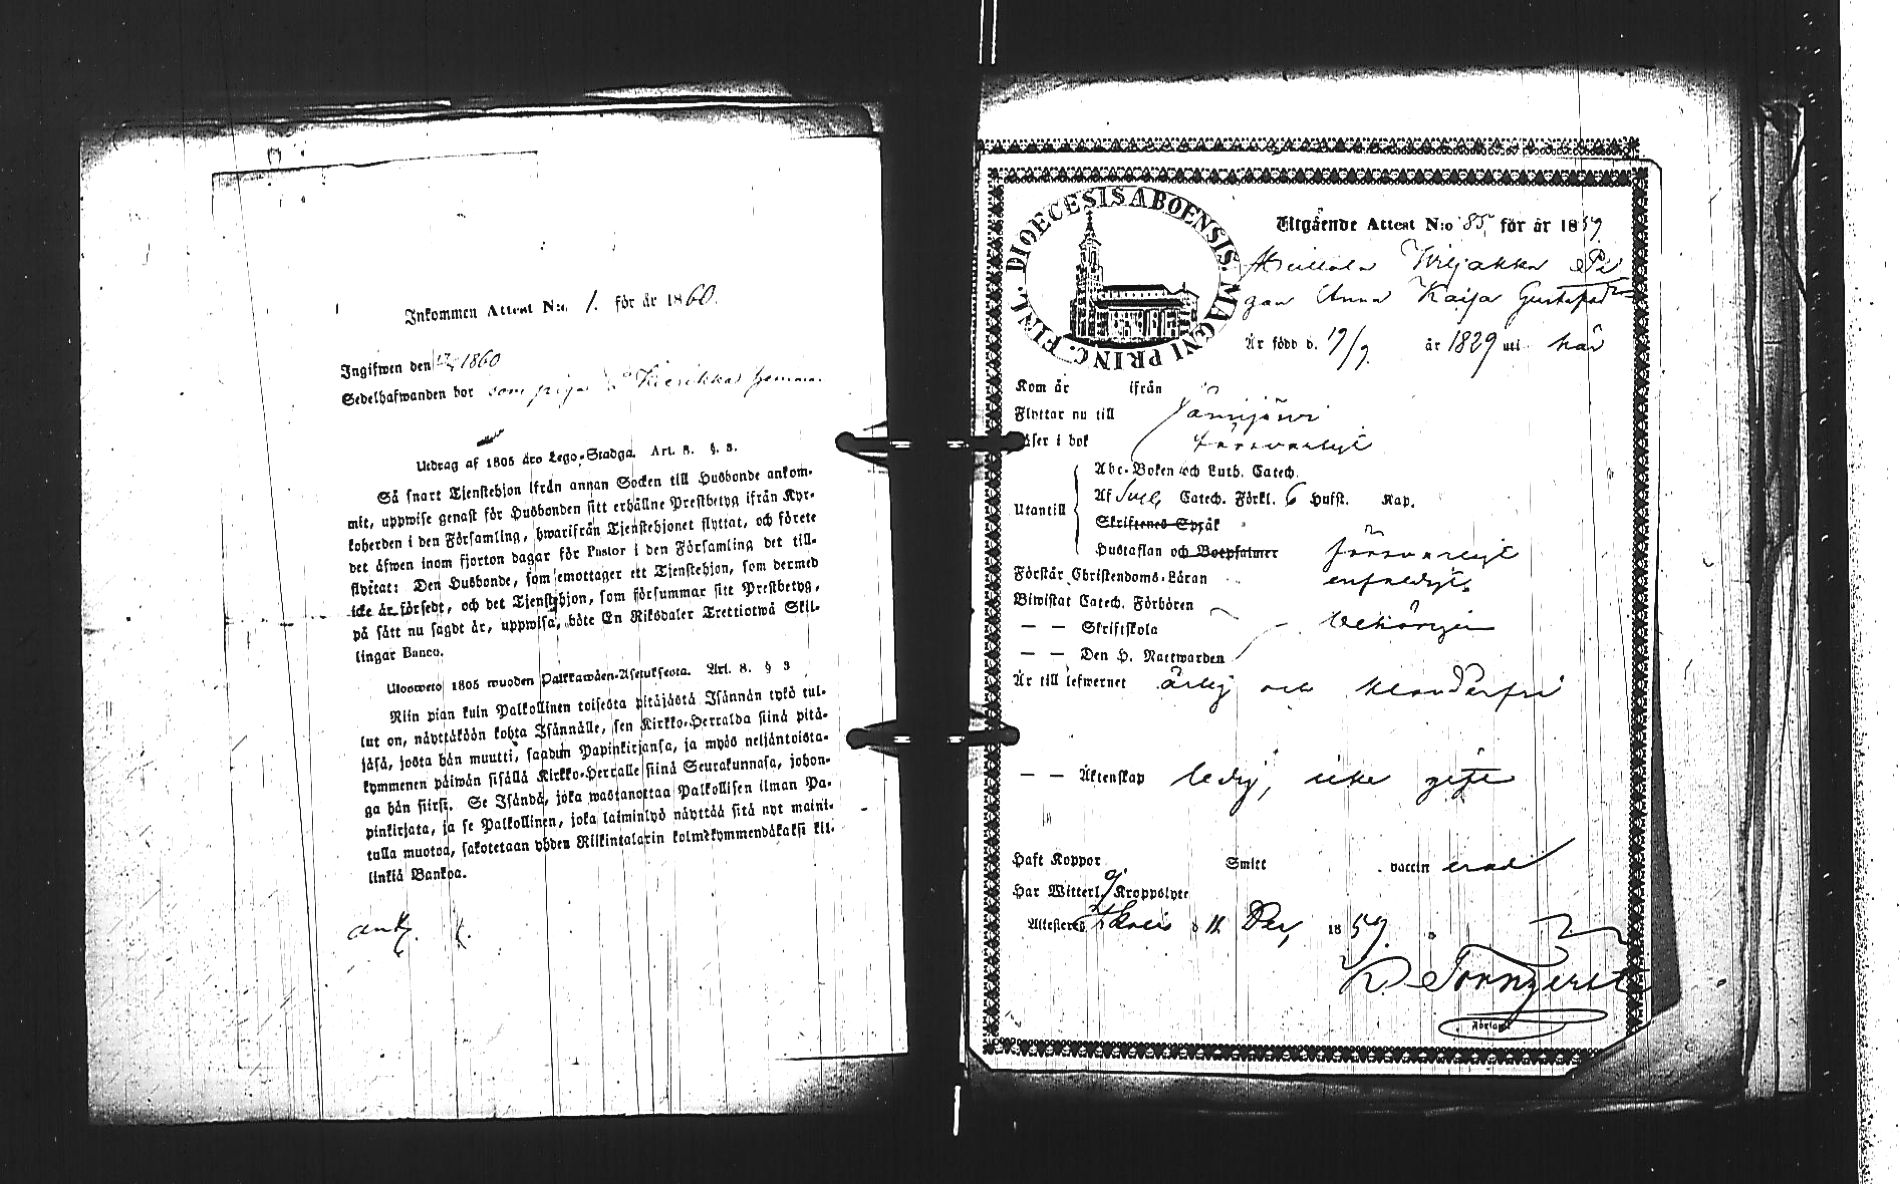 Inkommen Attest N:o 1. för år 1860.
Ingifwen den 1860
Sedelhafwanden bor som piga
Utdrag af 1805 års Lego-Stadga. Art. 8. §. 3.
Så snart Tjenstehjon ifrån annan Socken till Husbonde ankom-
mit, uppwise genast för Husbonden sitt erhållne Prestbetyg ifrån Kyr-
koherden i den Församling, hwarifrån Tjenstehjonet flyttat, och förete
det äfwen inom fjorton dagar för Pastor i den Församling det till-
flyttat: Den Husbonde, som emottager ett Tjenstehjon, som dermed
icke är försedt, och det Tjenstehjon, som försummar sitt Prestbetyg,
på sätt nu sagdt är, uppwisa, böte En Riksdaler Trettiotwå Skil-
lingar Banco.
Ulosweto 1805 wuoden Palkkawäen-Asetuksesta. Art. 8. § 3
Niin pian kuin Palkollinen toisesta pitäjästä Isännän tykö tul-
lut on, näyttäköön kohta Isännälle, sen Kirkko-Herralda siinä pitä-
jäsä, josta hän muutti, saadun Papinkirjansa, ja myös neljäntoista-
kymmenen päiwän sisällä Kirkko-Herralle siinä Seurakunnasa, johon-
ga hän siirsi. Se Isändä, joka wastanottaa Palkollisen ilman Pa-
pinkirjata, ja se Palkollinen, joka laiminlyö näyttää sitä nyt maini-
tulla muotoa, sakotetaan yhden Riikintalarin kolmekymmendäkaksi kil-
linkiä Bankoa.
DIOECESIS ABOENSIS. MAGNI PRINC. FINL.
Utgående Attest N:o 85, för år 1859.
Wiljakka Pi
gan Anna Kaisa Gustafsd:r
Är född d. 19/9. år 1829 uti här
Kom år ifrån
Flyttar nu till Jämijärwi
Läser i bok försvarligt
Abc-Boken och Luth. Catech.
Utantill Af Sveb. Catech. Förkl. 6 Hufst. Kap.
Skriftenes Språk
Hustaflan och Botpsalmer försvarligt
Förstår Christendoms-Läran enfaldigt.
Biwistat Catech. Förhören
— — Skriftskola behörigen
— — Den H. Nattwarden
Är till lefwernet ärlig och klanderfri
— — Äktenskap ledig, icke gift
Haft Koppor Smitt vaccin erad
Har Witterl. ej Kroppslyte
Attesteras d 11 Dec, 1859.